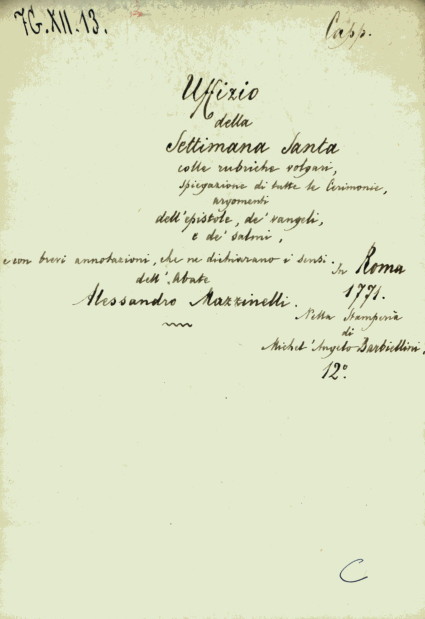 7G.XII.13.
Capp.
Uffizio
della
Settimana Santa
colle rubriche volgari,
spiegazione di tutte le Cerimonie,
argomenti
dell'epistole, de' vangeli,
e de' salmi,
e con brevi annotazioni, che ne dichiarano i sensi.
dell'Abate
Alessandro Mazzinelli.
In Roma
1771.
Nella Stamperia
di
Michel'Angelo Barbiellini,
12º.
C